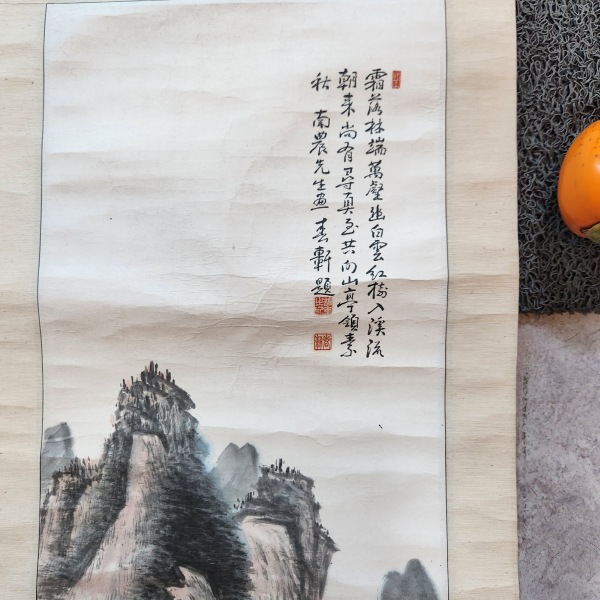 霜落林端萬壑幽白雲紅樹入溪流
朝来尚有尋真至共向山亭領素
秋 南農先生畫 春軒題